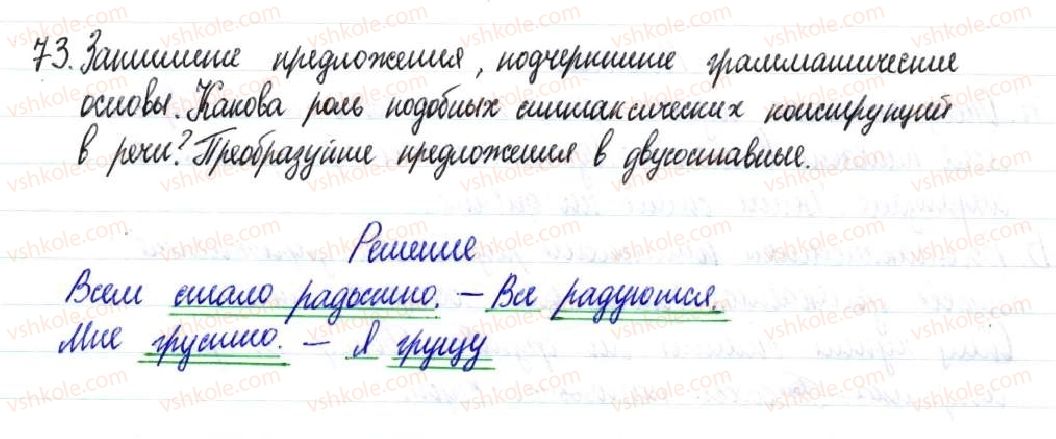 73. Запишите предложения, подчеркните грамматические
основы. Какова роль подобных синтаксических конструкций
в речи? Преобразуйте предложения в двусоставные.
Решение
Всем стало радостно. – Все радуются.
Мне грустно. – Я грущу